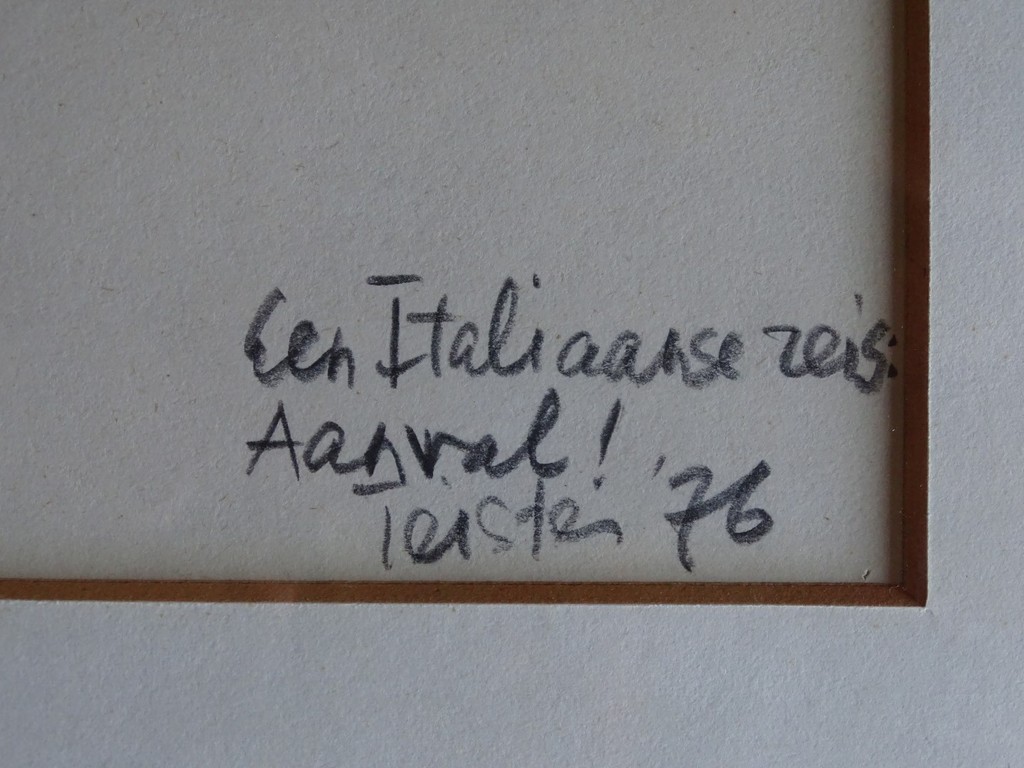 Een Italiaanse reis:
Aanval!
Teister '76